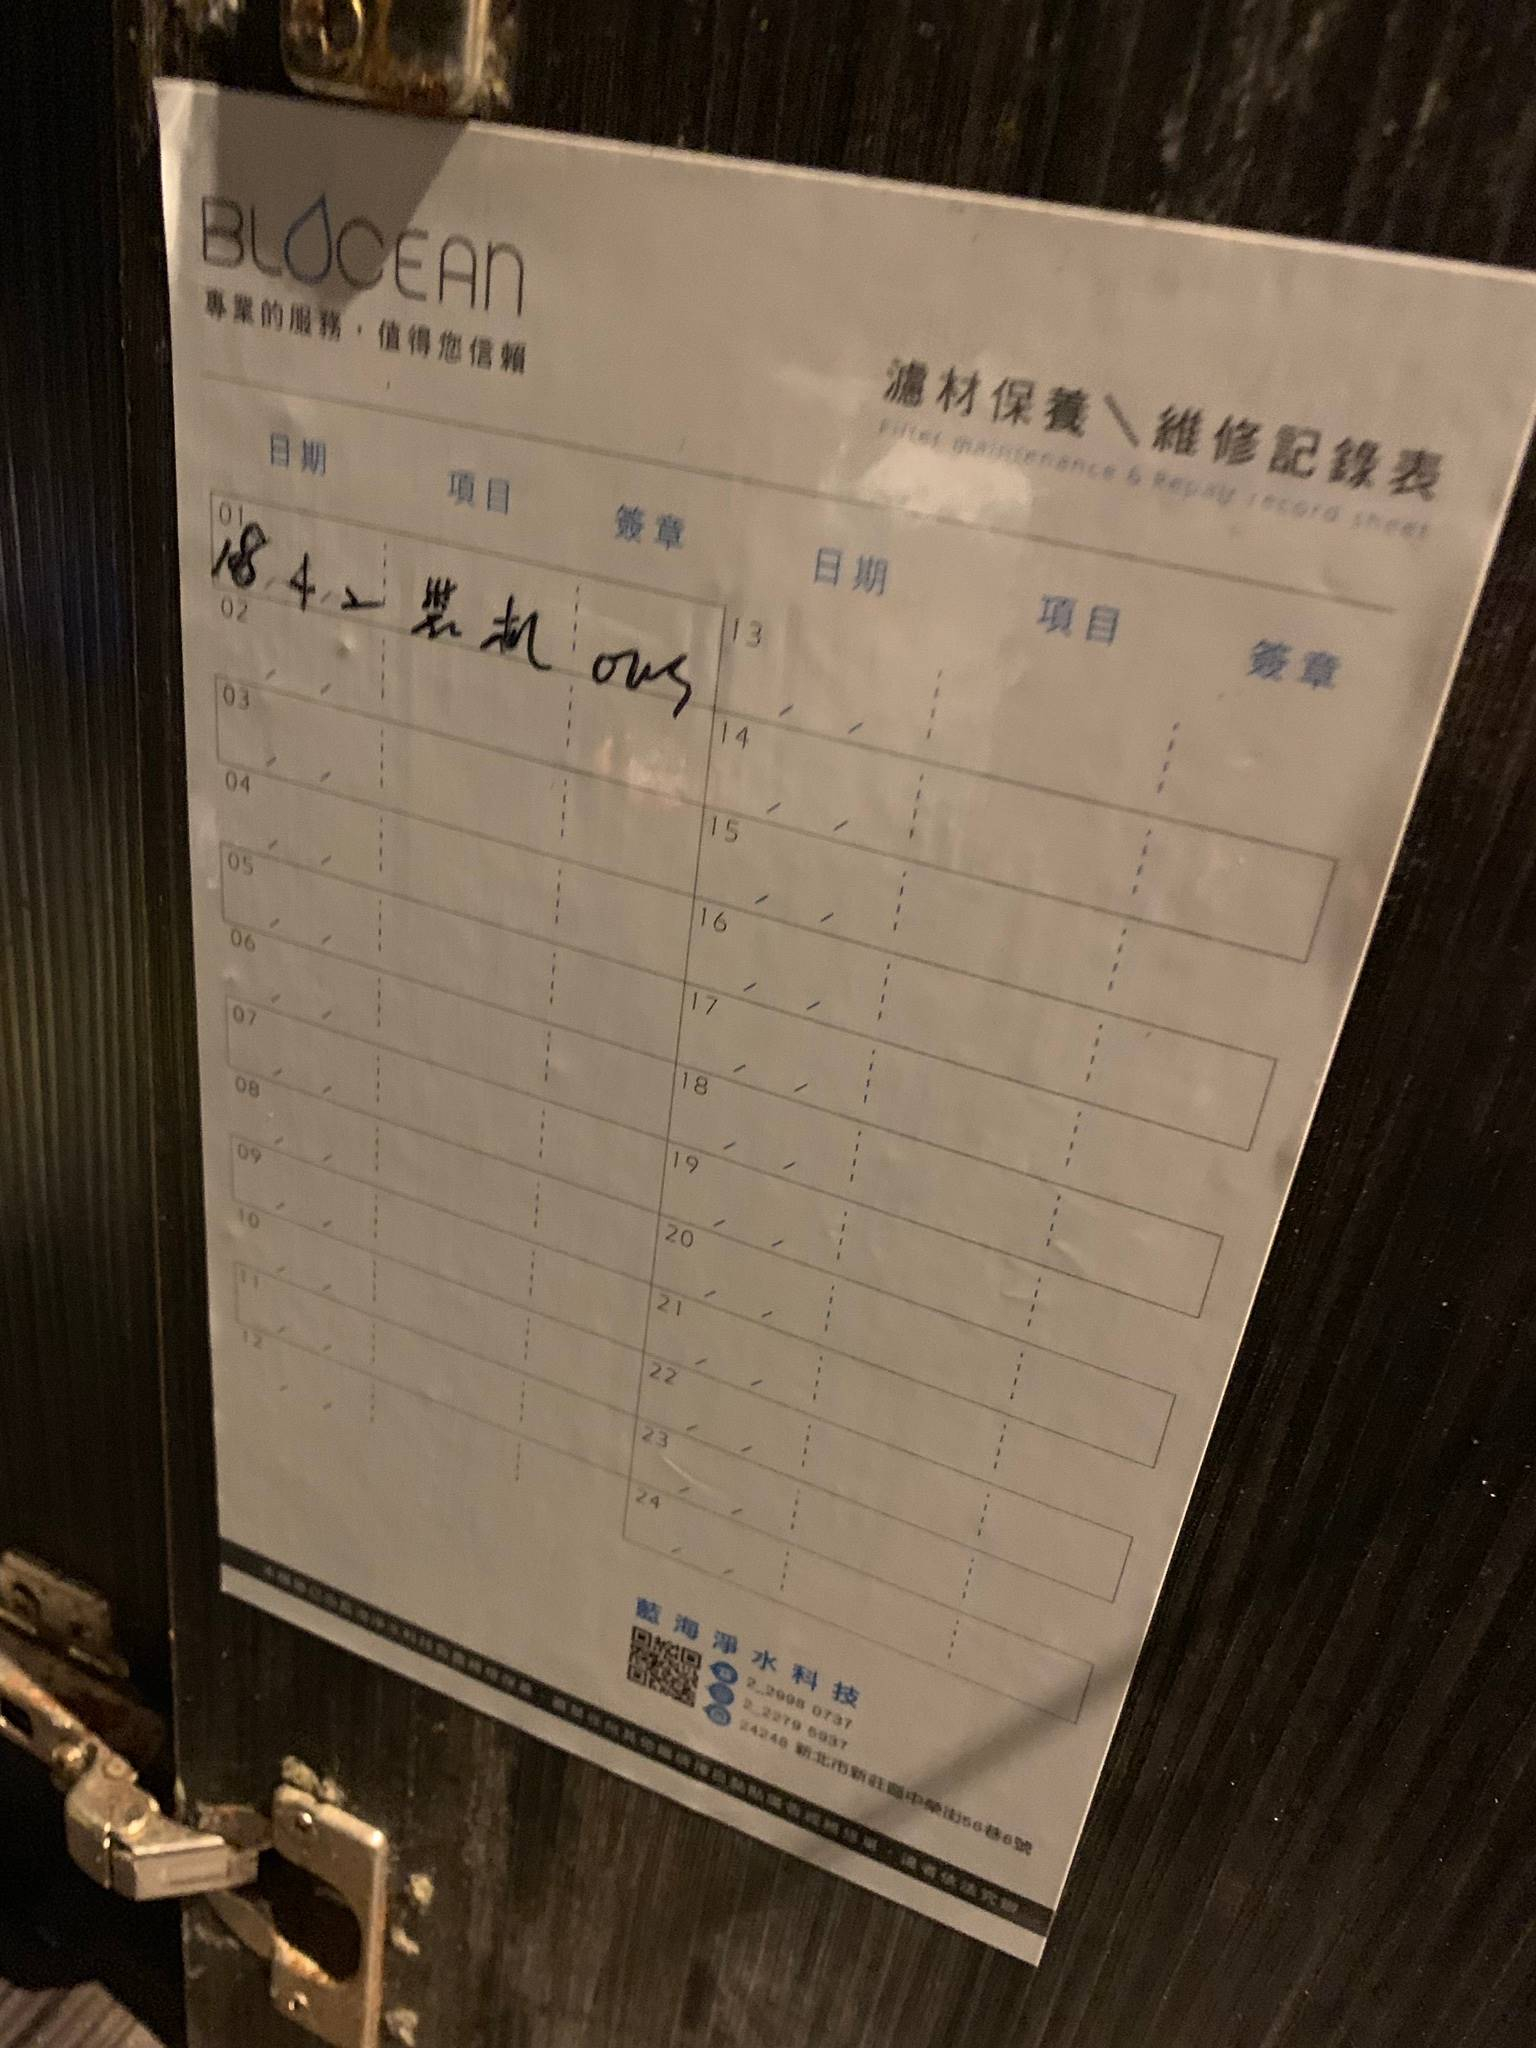 BLOCEAN
專業的服務，值得您信賴
濾材保養\維修記錄表
Filter maintenance & Repair record sheet
日期 項目 簽章
日期 項目 簽章
01
18.4.2 裝机
02
03
04
05
06
07
08
09
10
11
12
13
14
15
16
17
18
19
20
21
22
23
24
藍海淨水科技
2_2998 0737
2_2279 5937
24248 新北市新莊區中榮街56巷6號